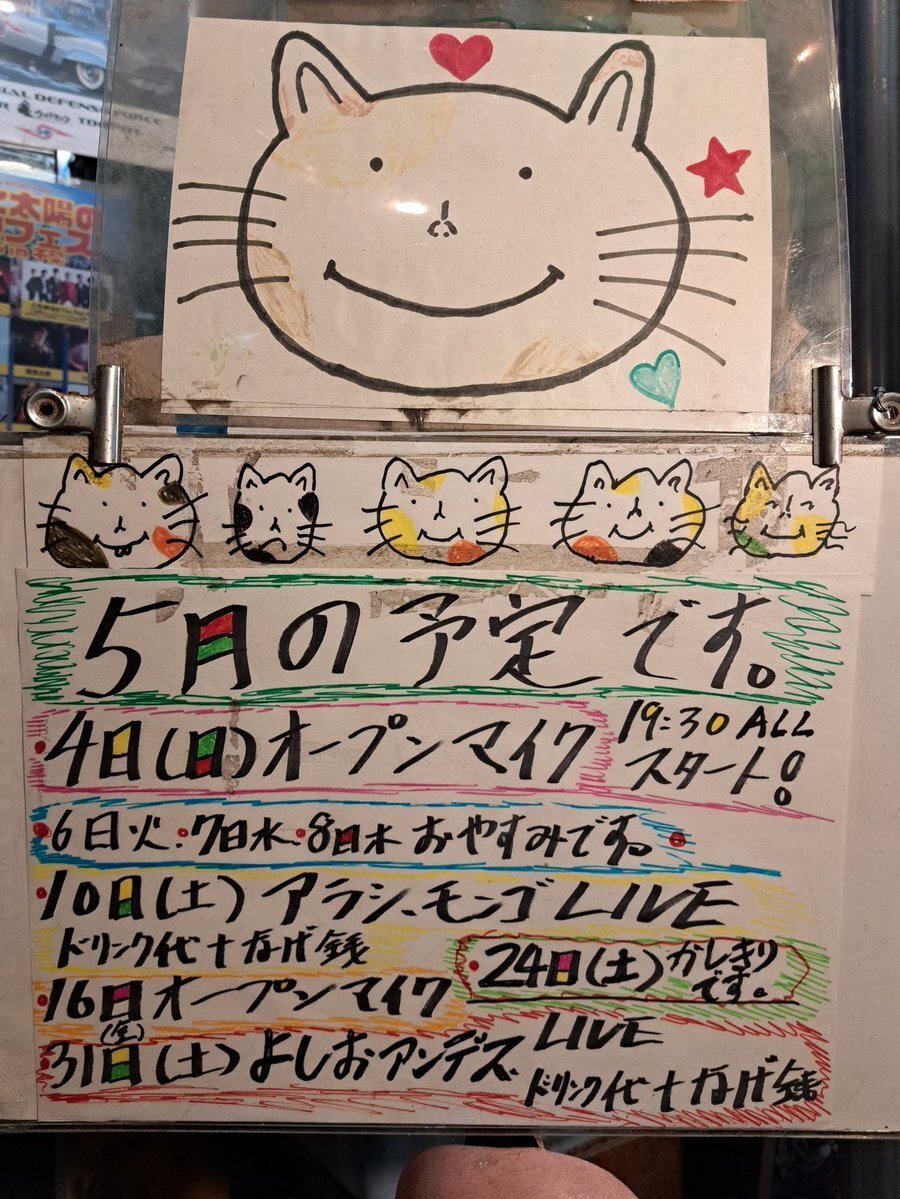 IAL DEFENS FORCE
太陽の
フェス
5月の予定です。
4日(日)オープンマイク 19:30 ALL
スタート!
・6日火・7日水・8日木 おやすみです。
・10日(土)アラシ、モンゴLIVE
ドリンク代+なげ銭
・24日(土)かしきり
です。
・16日オープンマイク
(金)
・31日(土)よしおアンデス LIVE
ドリンク代+なげ銭